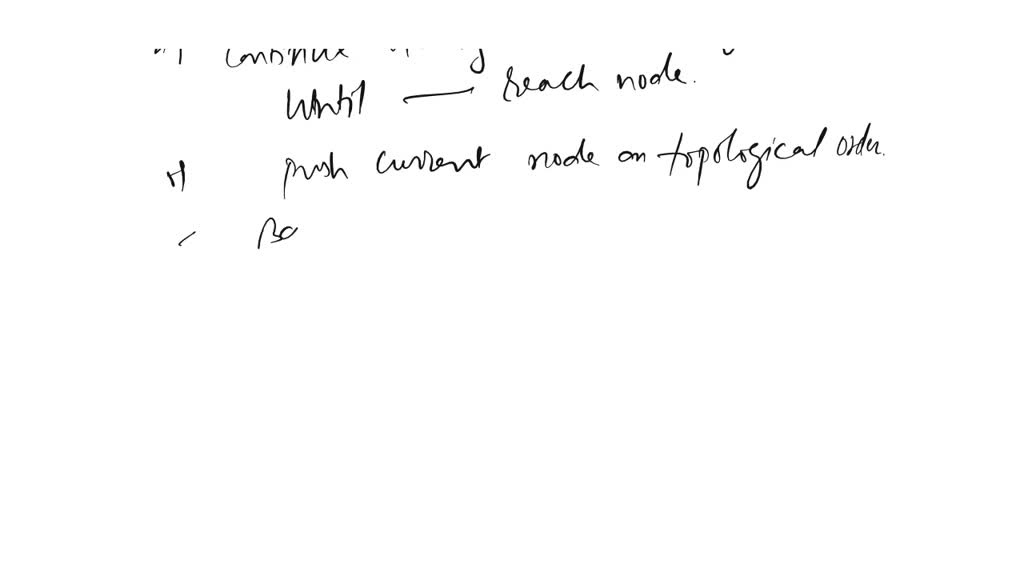 continue
until — reach node.
push current node on topological order.
Bo